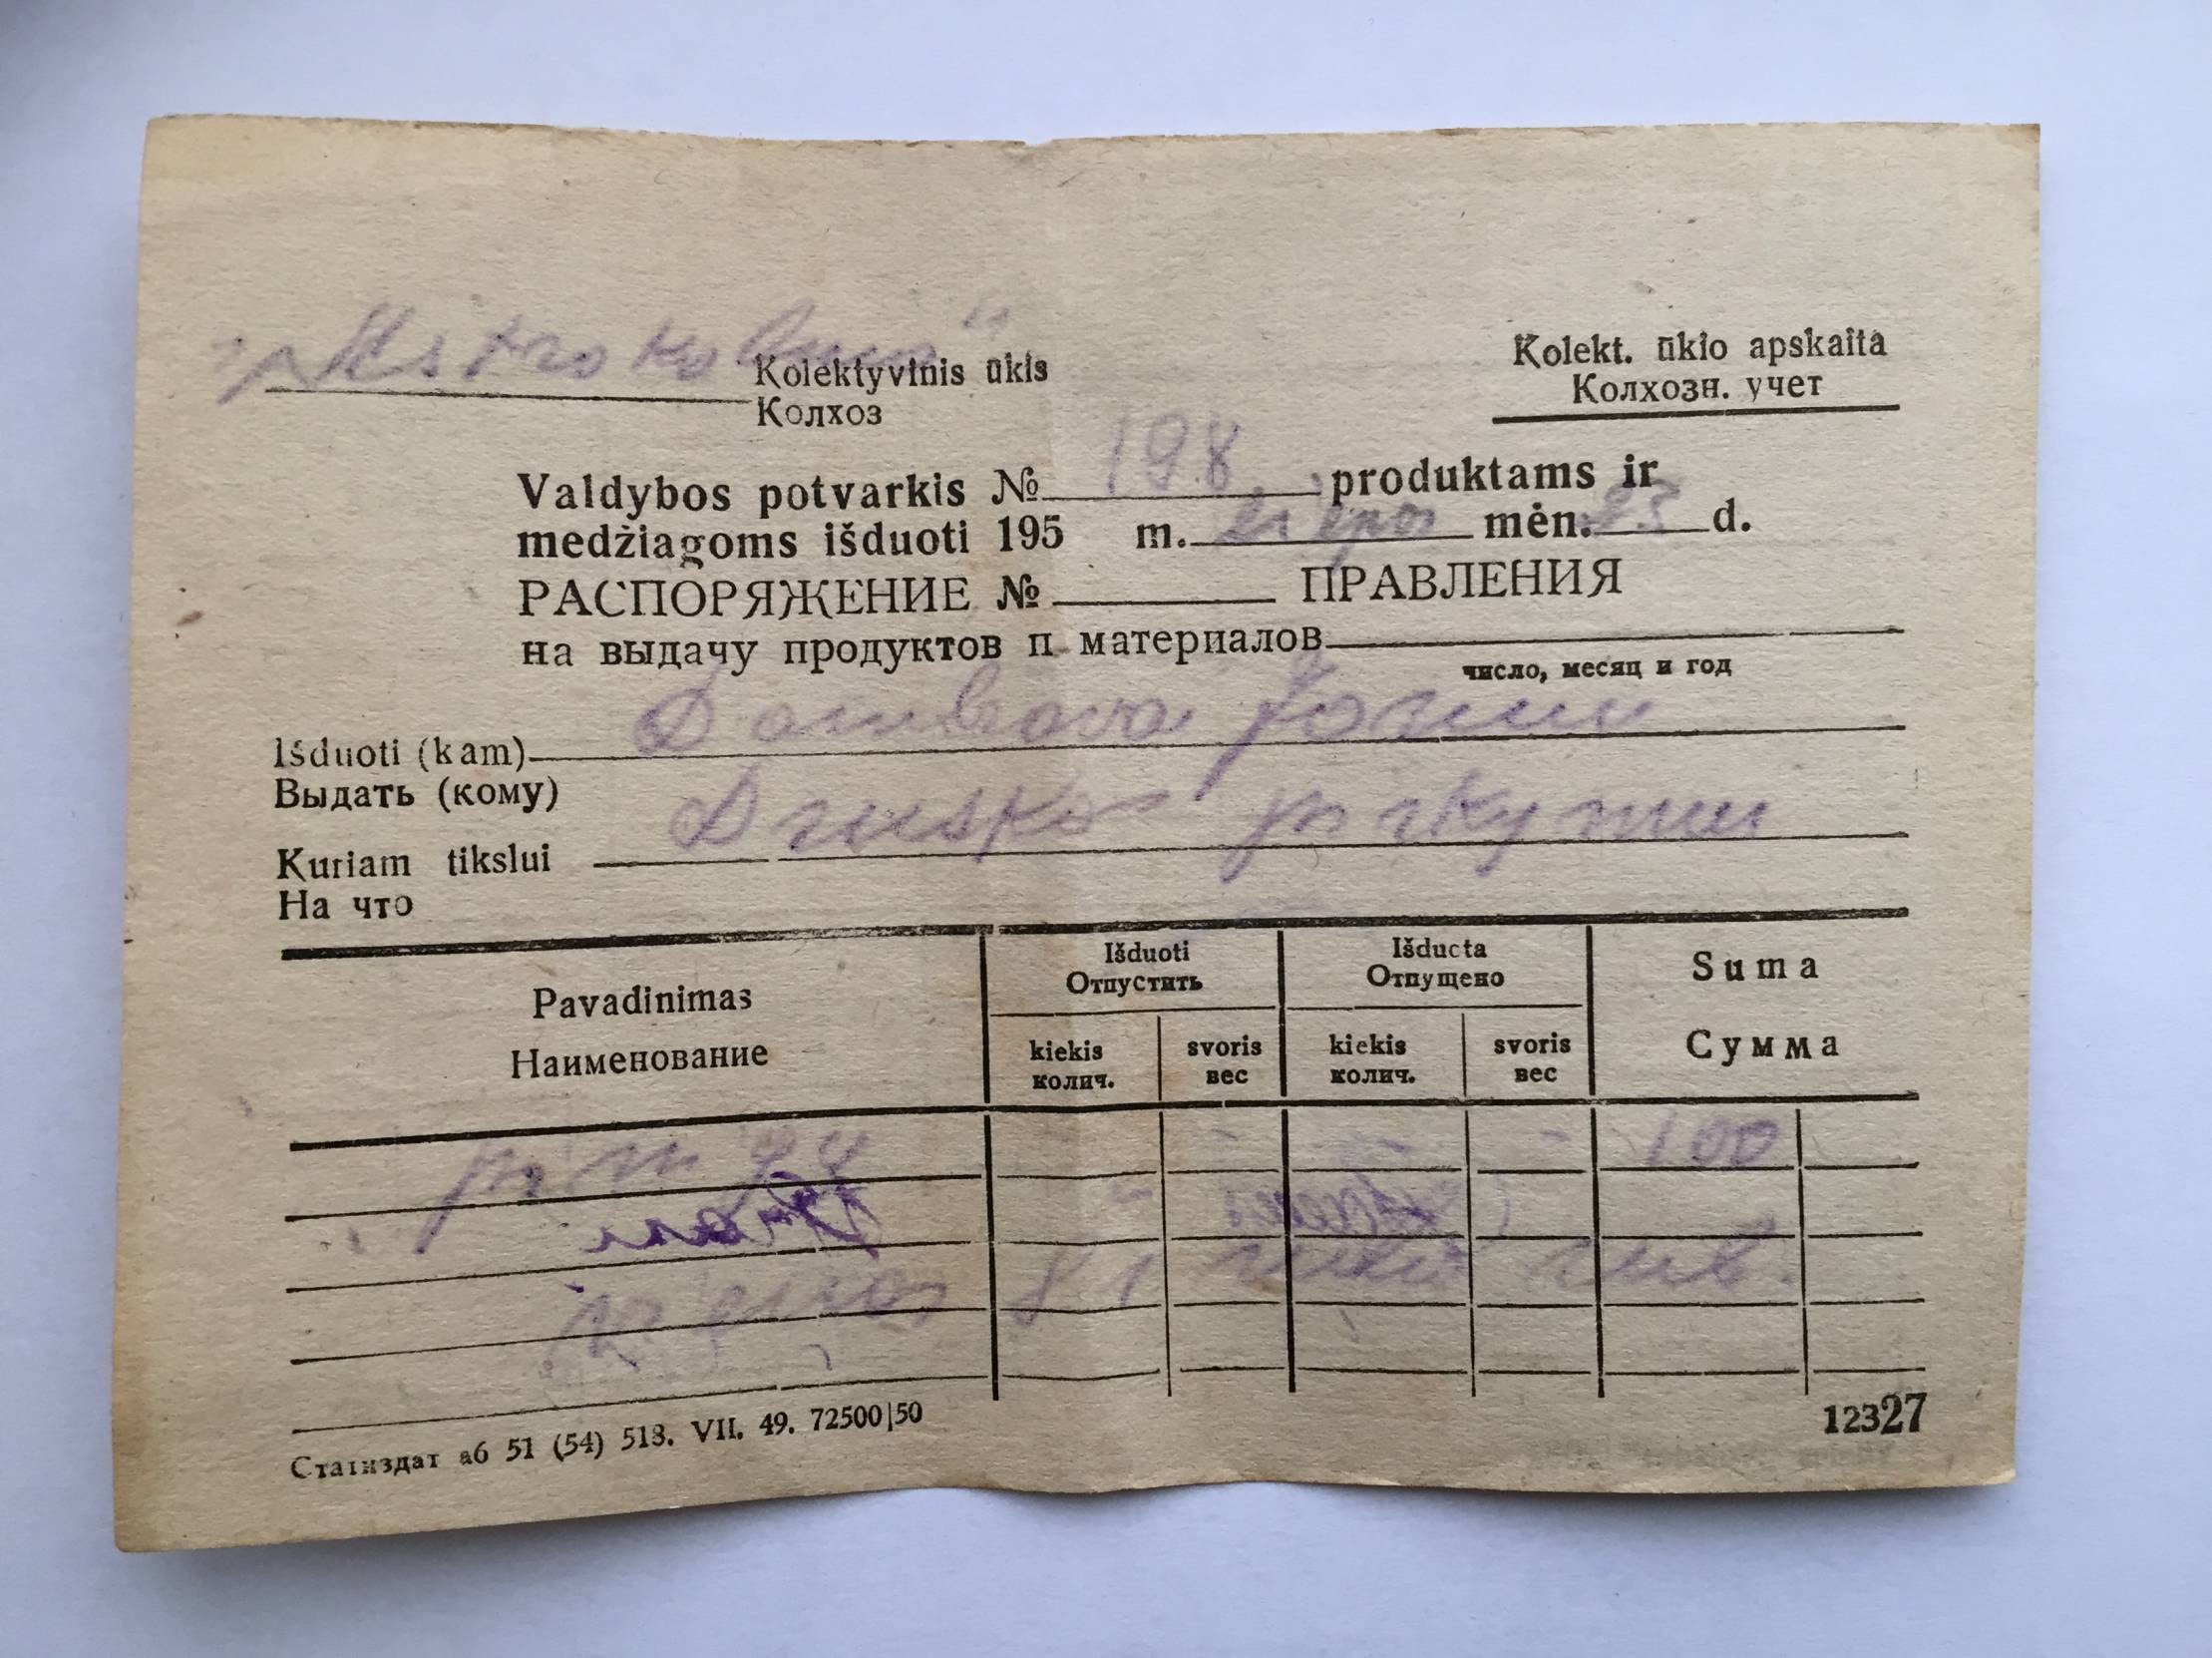 Kolektyvinis ūkis
Колхоз
Kolekt. ūkio apskaita
Колхозн. учет
Valdybos potvarkis № 198 produktams ir
medžiagoms išduoti 195 m. liepos mėn. 23 d.
РАСПОРЯЖЕНИЕ № ПРАВЛЕНИЯ
на выдачу продуктов п материалов
число, месяц и год
Išduoti (kam) Dombrova Jozui
Выдать (кому)
Kuriam tikslui Druskos pirkymui
На что
Pavadinimas
Наименование
Išduoti
Отпустить
Išducta
Отпущено
Suma
Сумма
kiekis
колич.
svoris
вес
kiekis
колич.
svoris
вес
pinigų 100
Статиздат аб 51 (54) 513. VII. 49. 72500|50
12327